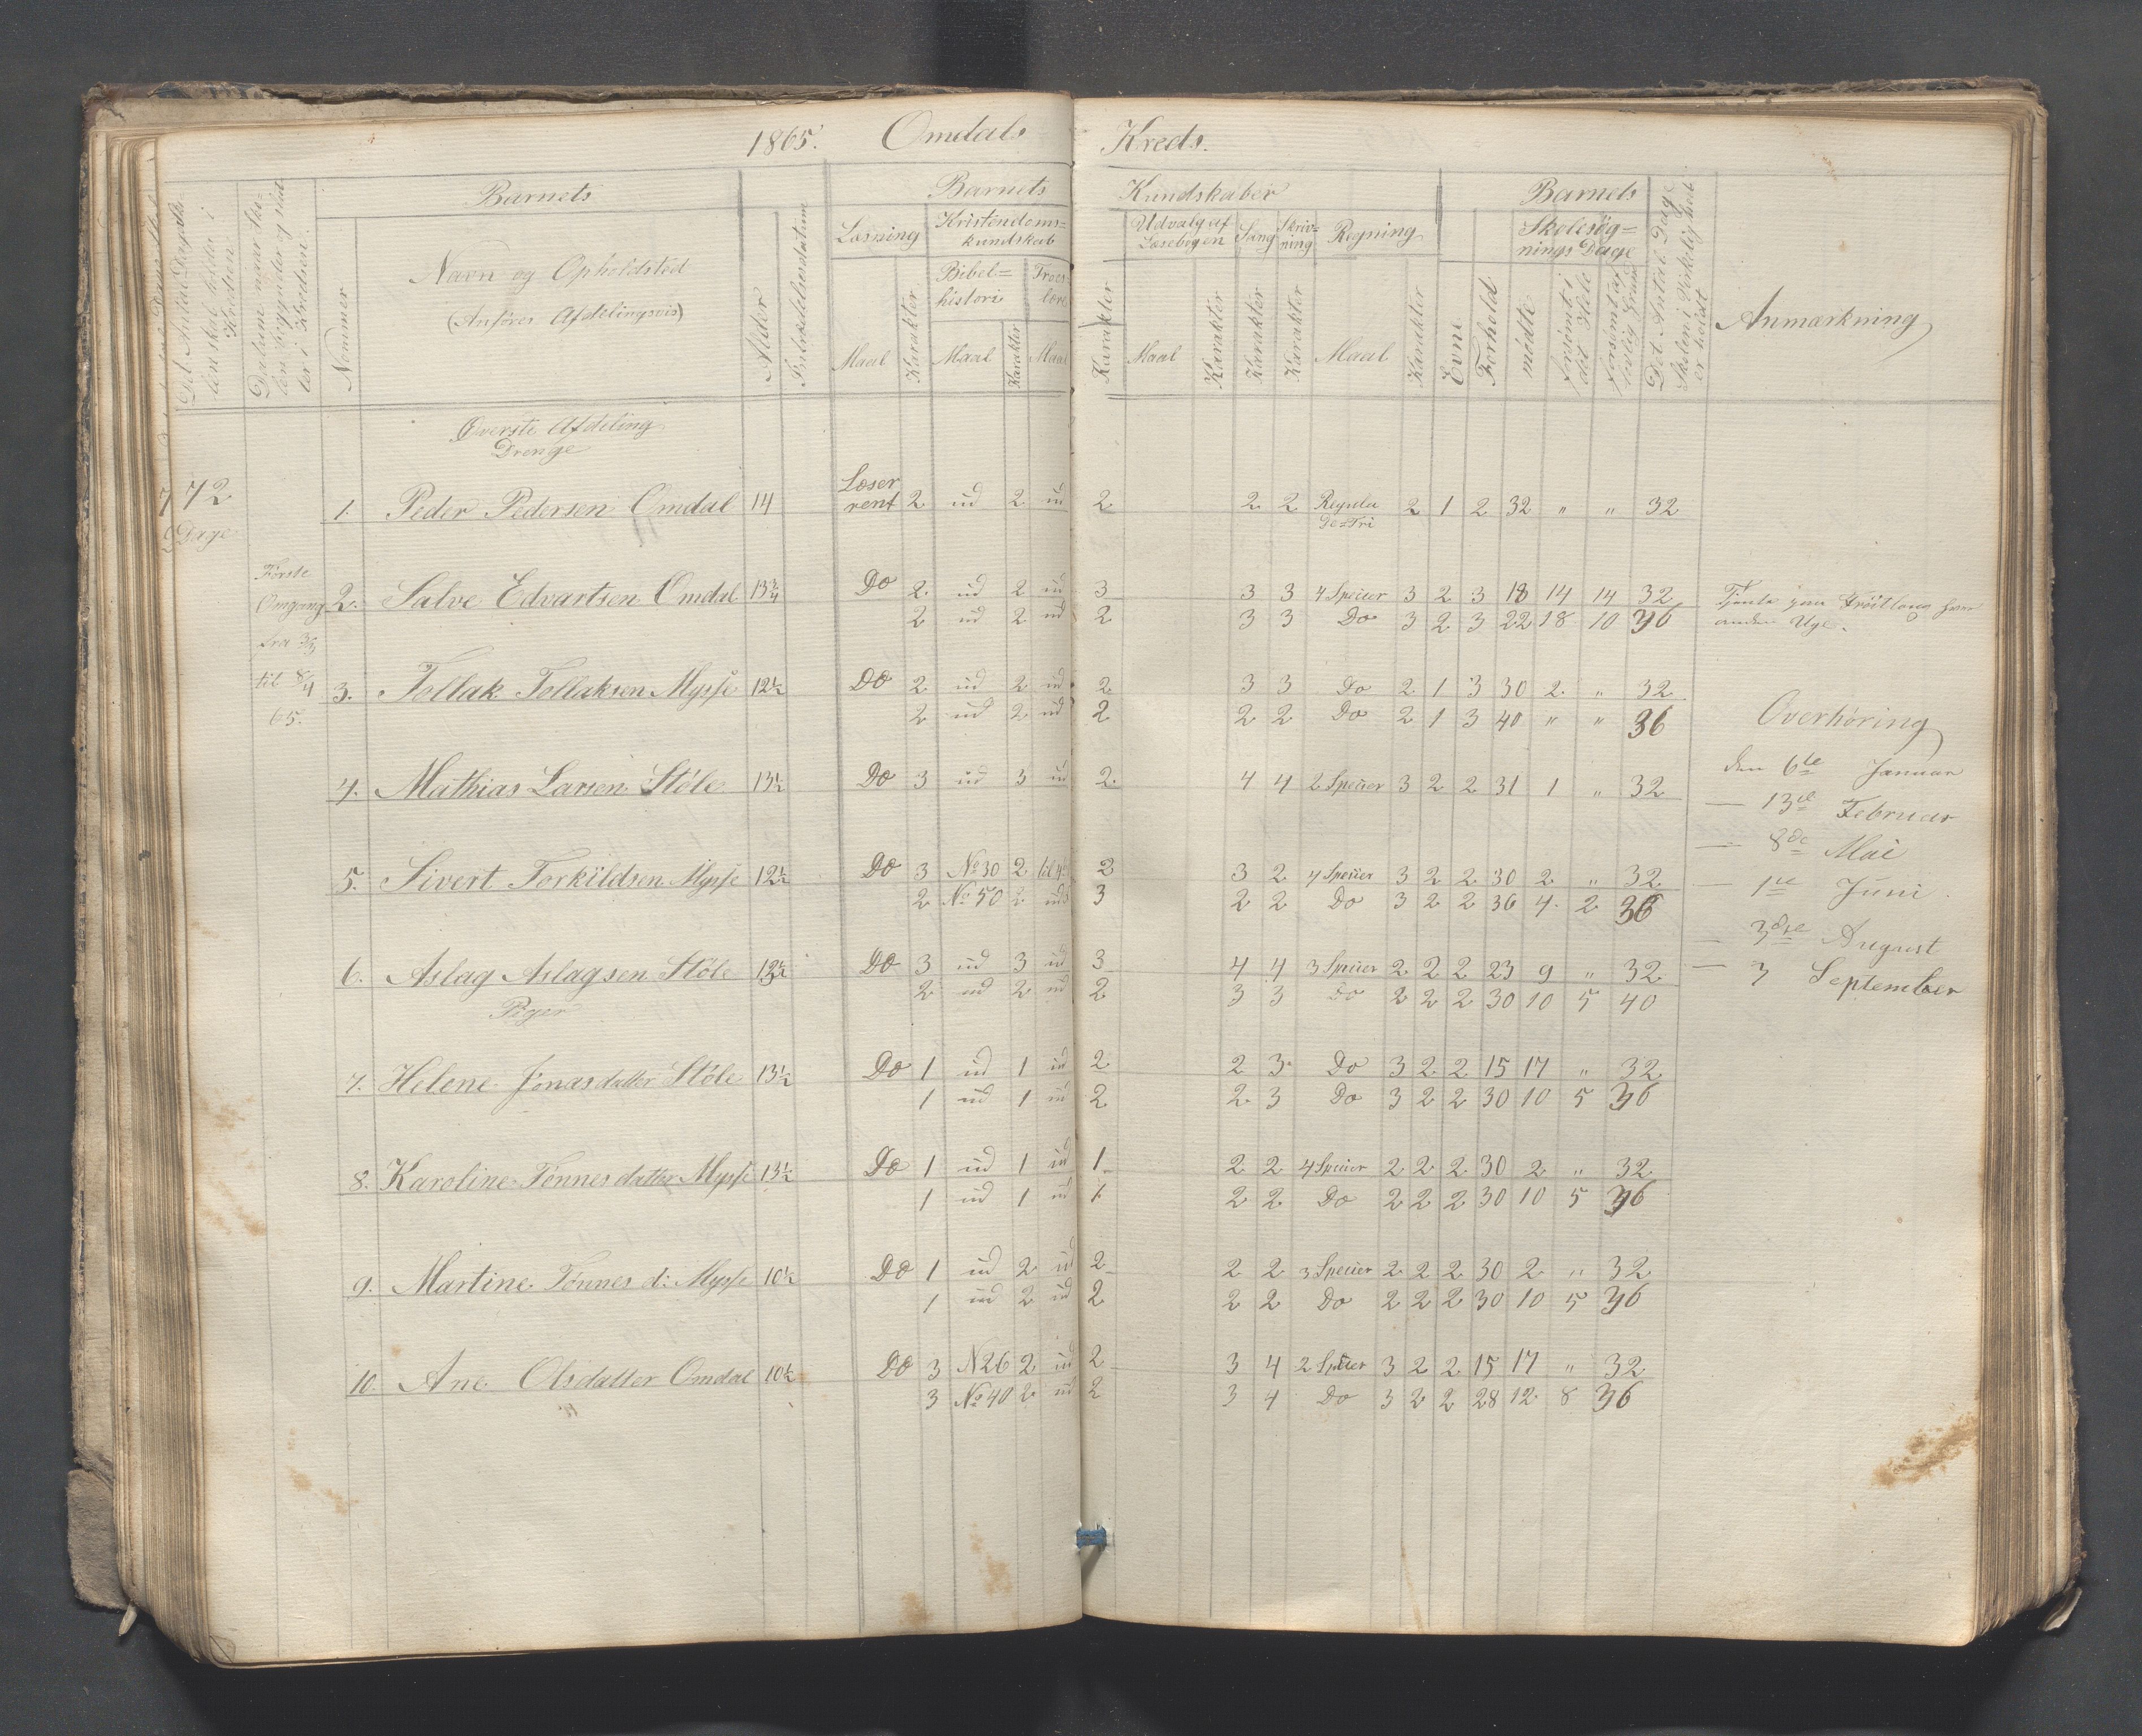 1865. Omdals Kreds.
Det Antal Dage Skolen skal holdes i Kredsen
Datum naar Skolen begynder og slutter i Kredsen.
Nummer
Barnets
Navn og Opholdsted
(Anføres Afdelingsvis)
Alder
Indtrædelsesdatum
Barnets Kundskaber
Læsning
Maal
Karakter
Kristendoms=kundskab
Bibel=historie
Maal
Karakter
Troes-lære
Maal
Karakter
Udvalg af Læsebogen
Maal
Karakter
Sang
Karakter
Skriv=ning
Karakter
Regning
Maal
Karakter
Barnets
Evne
Forhold
Skolesøg=nings Dage
mødte
forsømte i det Hele
forsømt af lovlig Grund
Det Antal Dage Skolen i Virkelighed er holdt
Anmærkning
Øverste Afdeling
Drenge
72
Dage
1. Peder Pedersen Omdal 14 Læser rent 2 ud 2 ud 2 2 2 Regula De=Tri 2 1 2 32 " " 32
Første
Omgang
fra
til 8/4
65.
2. Salve Edvartsen Omdal 13 3/4 Do 2 ud 2 ud 3 3 3 4 Speuer 3 2 3 18 14 14 32
2 ud 2 ud 2 3 3 Do 3 2 3 22 18 10 36
Tjente hver
anden Uge.
3. Tollak Tollaksen Mysse 12 1/2 Do 2 ud 2 ud 2 3 3 Do 2 1 3 30 2 " 32
2 ud 2 ud 2 2 2 Do 2 1 3 40 " " 36
4. Mathias Larsen Støle 13 1/2 Do 3 ud 3 ud 2 4 4 2 Speuer 3 2 2 31 1 " 32
5. Sivert Torkildsen Mysse 12 1/2 Do 3 No 30 2 2 3 2 4 Speuer 3 2 2 30 2 " 32
2 No 50 2 ud 3 2 2 Do 3 2 2 36 4 2 36
6. Aslag Aslagsen Støle 12 1/2 Do 3 ud 3 ud 3 4 4 3 Speuer 2 2 2 23 9 " 32
2 ud 2 ud 2 3 3 Do 2 2 2 30 10 5 40
Piger
7. Helene Jonasdatter Støle 13 1/2 Do 1 ud 1 ud 2 2 3 Do 3 2 2 15 17 " 32
1 ud 1 ud 2 2 3 Do 3 2 2 30 10 5 36
8. Karoline Tønnesdatter Mysse 13 1/2 Do 1 ud 1 ud 1 2 2 4 Speuer 2 2 2 30 2 " 32
1 ud 1 ud 1 2 2 Do 2 2 2 30 10 5 36
9. Martine Tønnes d: Mysse 10 1/2 Do 1 ud 2 ud 2 2 2 3 Speuer 2 2 2 30 2 " 32
1 ud 2 ud 2 2 2 Do 2 2 2 30 10 5 36
10. Ane Olsdatter Omdal 10 1/2 Do 3 N 26 2 ud 2 3 4 2 Speuer 3 2 2 15 17 " 32
3 No 40 2 ud 2 3 4 Do 3 2 2 28 12 8 36
Overhøring
den 6te Januar
— 13de Februar
— 8de Mai
— 1ste Juni.
— 3die August
— 3 September